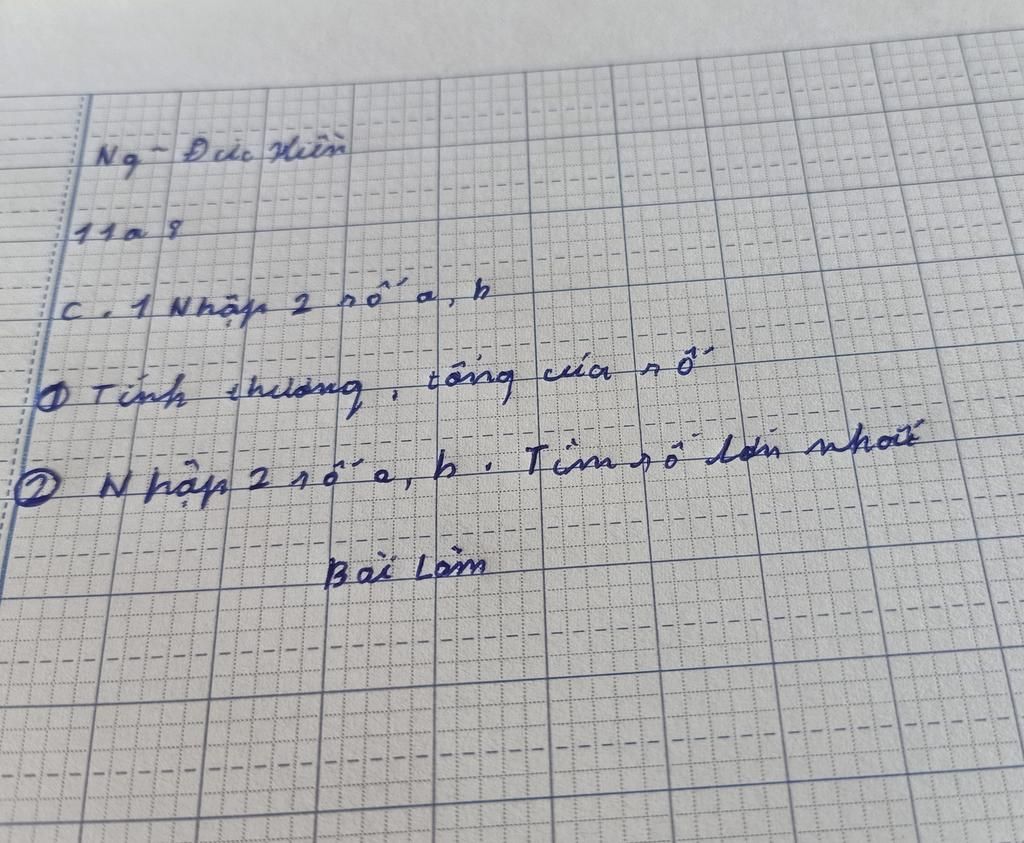 Ng - Đức Hiền
11a 8
C. 1 Nhập 2 số a, b
① Tính thương, tổng của số
② Nhập 2 số a, b. Tìm số lớn nhất
Bài Làm